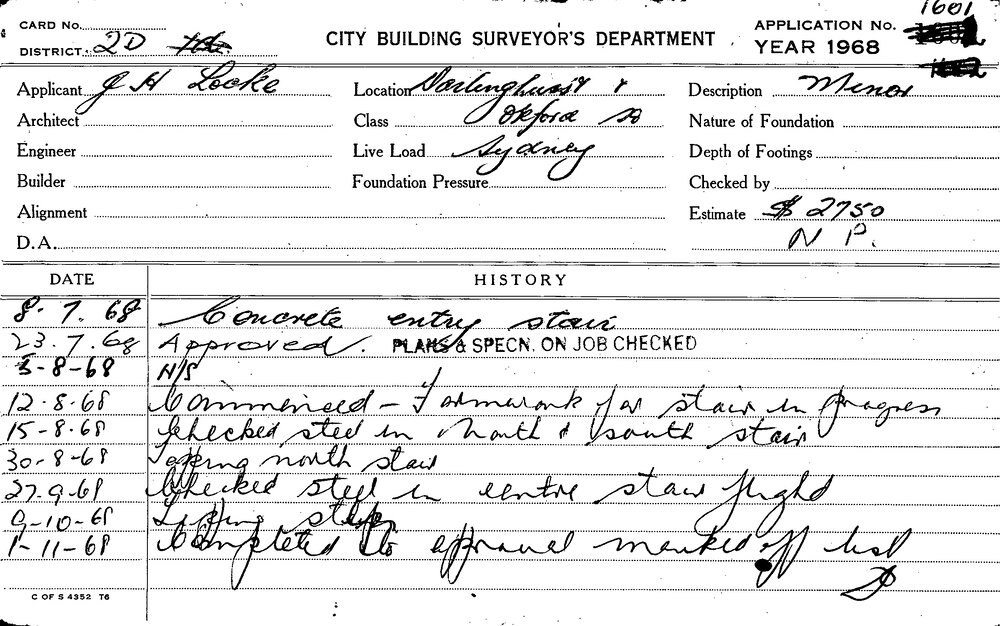 1601
CARD No.
DISTRICT. 2D
CITY BUILDING SURVEYOR'S DEPARTMENT
APPLICATION No.
YEAR 1968
Applicant J H Locke
Location Darlinghurst &
Description Minor
Architect
Class Oxford Sq
Nature of Foundation
Engineer
Live Load Sydney
Depth of Footings
Builder
Foundation Pressure
Checked by
Alignment
Estimate $ 2750
D.A.
N P.
DATE
HISTORY
8. 7. 68 Concrete entry stair
23.7.68 Approved. PLANS & SPECN. ON JOB CHECKED
5-8-68 N/S
12-8-68 Commenced - Formwork for stair in progress
15-8-68 Checked steel in north & south stair
30-8-68 Topping north stair
27-9-68 Checked steel in centre stair flight
9-10-68 steps
1-11-68 Completed to approval marked off list
C OF S 4352 T6